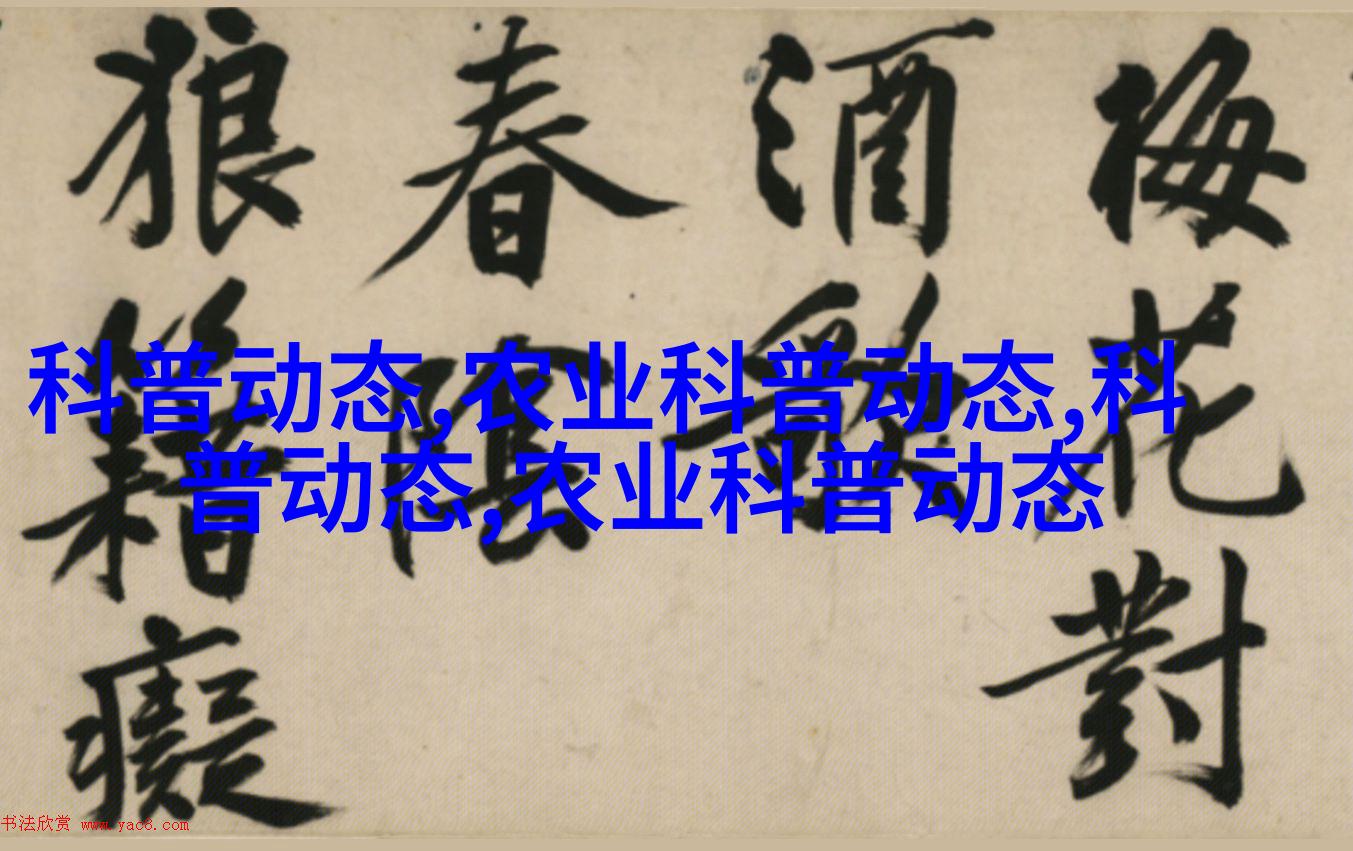 梅花對
酒
春
狼籍癡
科普动态,农业科普动态,科
普动态,农业科普动态
书法欣赏 www.yac8.com